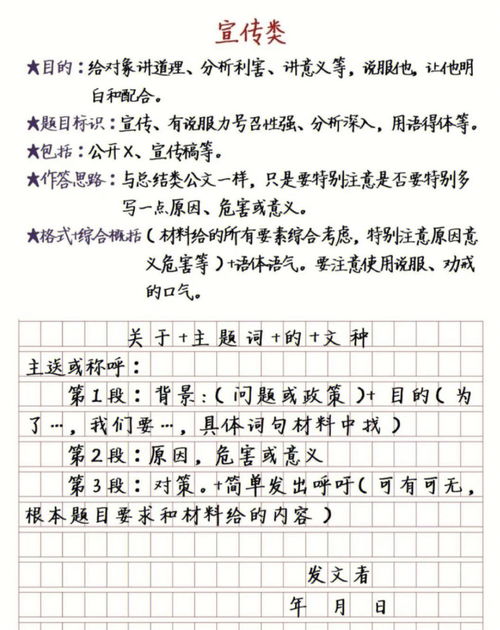 宣传类
★目的：给对象讲道理、分析利害、讲意义等，说服他，让他明
白和配合。
★题目标识：宣传、有说服力号召性强、分析深入，用语得体等。
★包括：公开X、宣传稿等。
★作答思路：与总结类公文一样，只是要特别注意是否要特别多
写一点原因、危害或意义。
★格式+综合概括（材料给的所有要素综合考虑，特别注意原因意
义危害等）+语体语气。要注意使用说服、劝戒
的口气。
关于+主题词+的+文种
主送或称呼：
第1段：背景：（问题或政策）+目的（为
了…，我们要…，具体词句材料中找）
第2段：原因，危害或意义
第3段：对策。+简单发出呼吁（可有可无，
根本题目要求和材料给的内容）
发文者
年 月 日